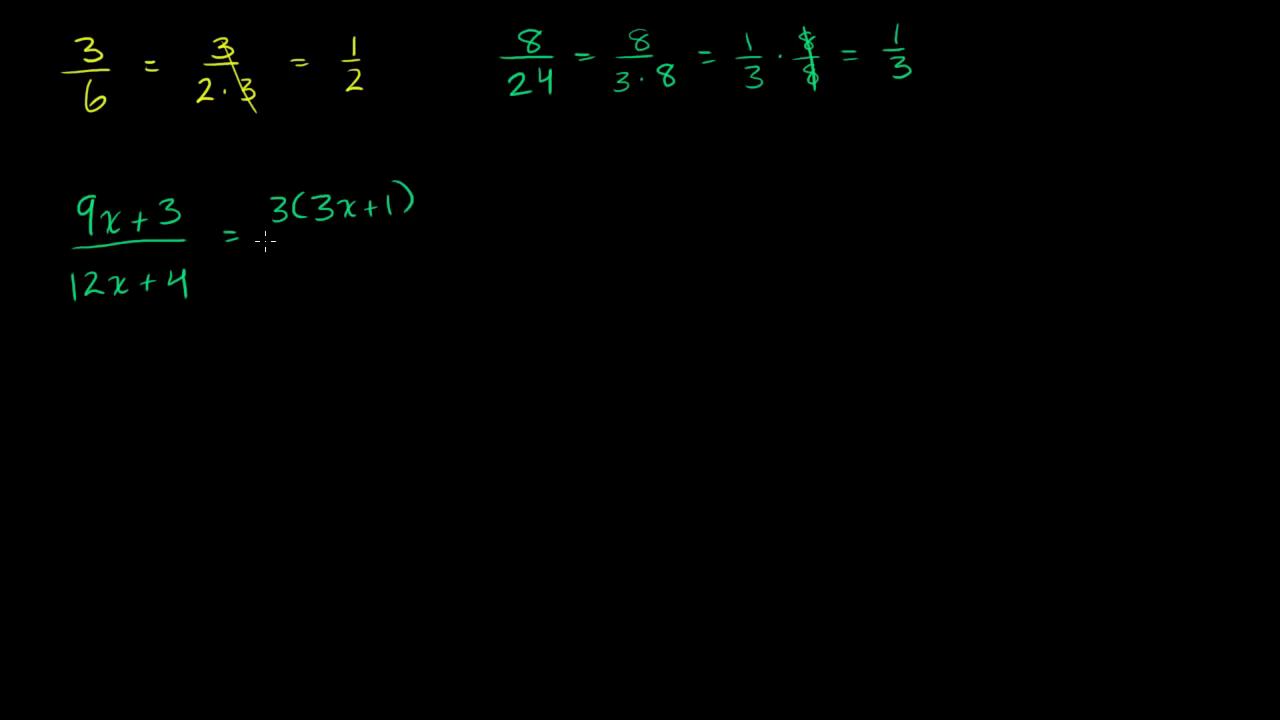 3/6 = 3/(2·3) = 1/2
8/24 = 8/(3·8) = 1/3 · 8/8 = 1/3
(9x+3)/(12x+4) = 3(3x+1)